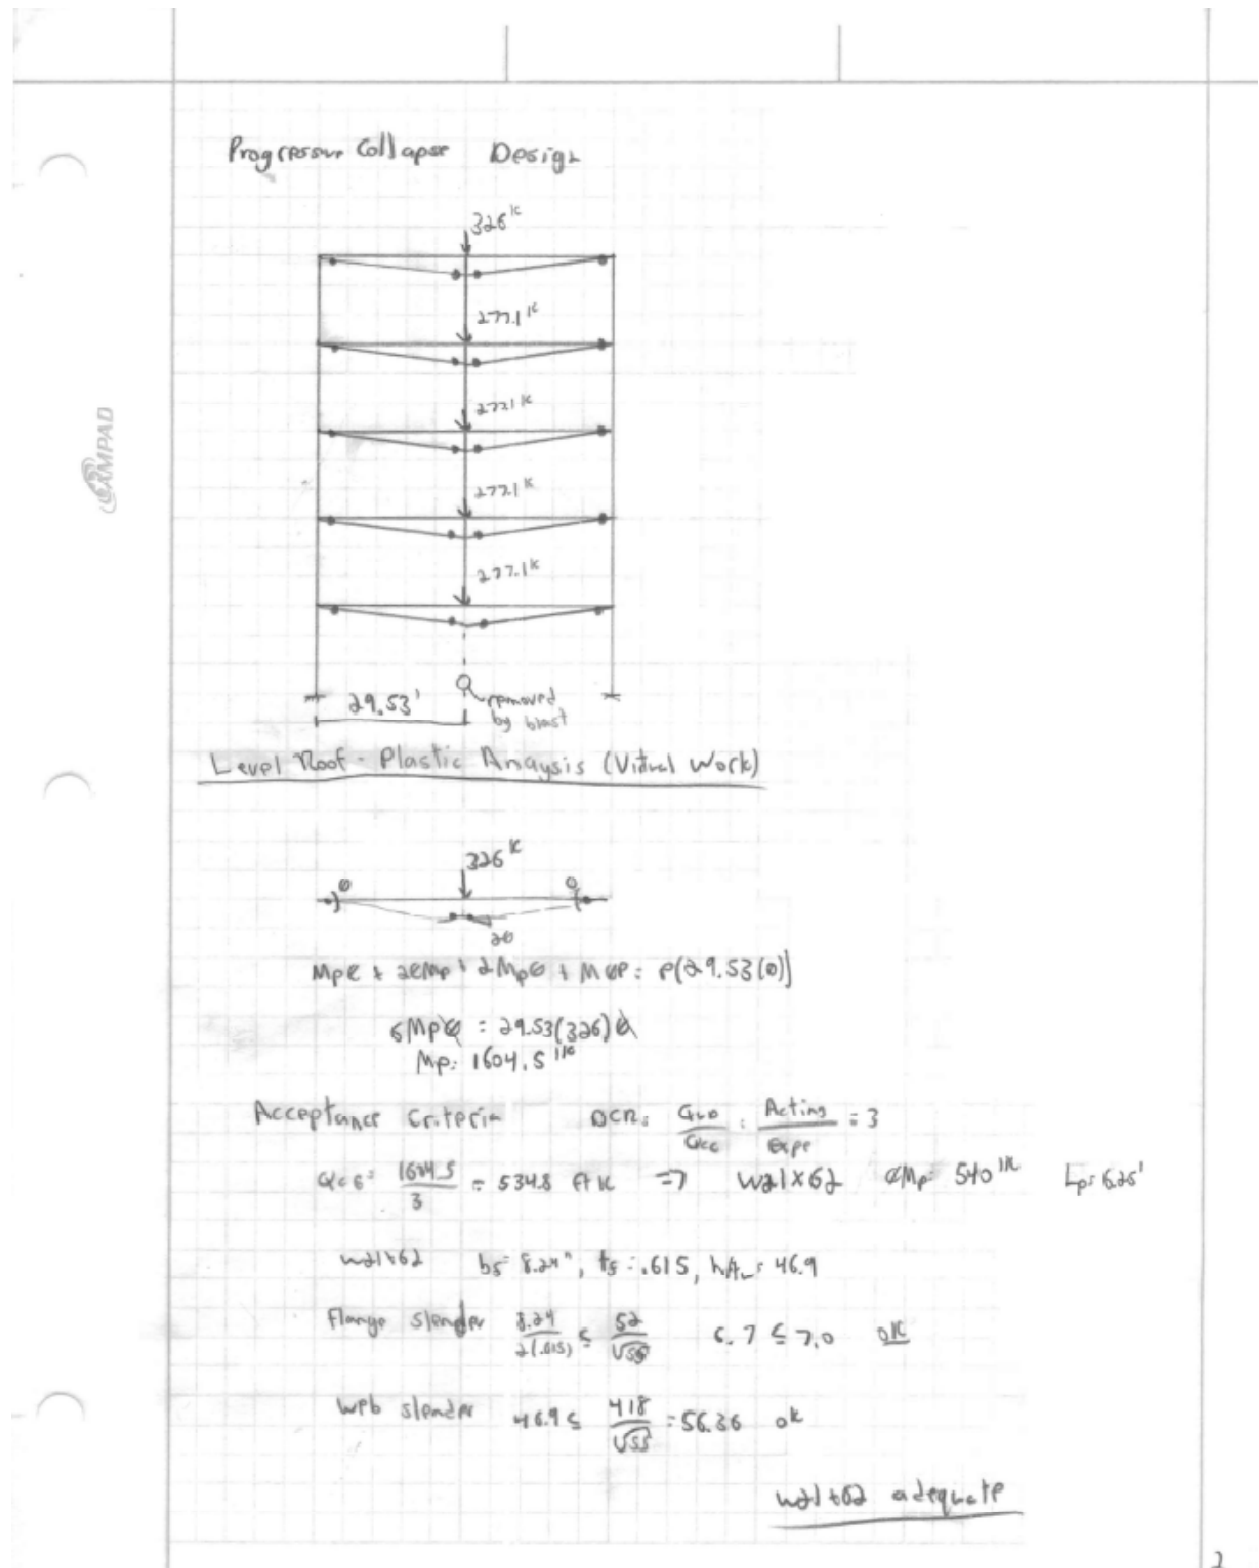 Progressive Collapse Design
326 k
277.1 k
277.1 k
277.1 k
277.1 k
AMPAD
29.53'
removed
by blast
Level Roof - Plastic Anaysis (Virtual Work)
326 k
θ θ
2θ
Mpθ + 2θMp + 2Mpθ + Mθp = P(29.53(θ))
6Mpθ = 29.53(326)θ
Mp = 1604.5 'k
Acceptance Criteria DCR = = Acting = 3
1604.5 / 3 = 534.8 ft k => W21x62 ØMp = 540 'k Lp = 6.25'
W21x62 bf = 8.24", tf = .615, h/tw = 46.9
Flange slender 8.24 / 2(.615) ≤ 52 / √55 6.7 ≤ 7.0 ok
Web slender 46.9 ≤ 418 / √55 = 56.36 ok
W21x62 adequate
2